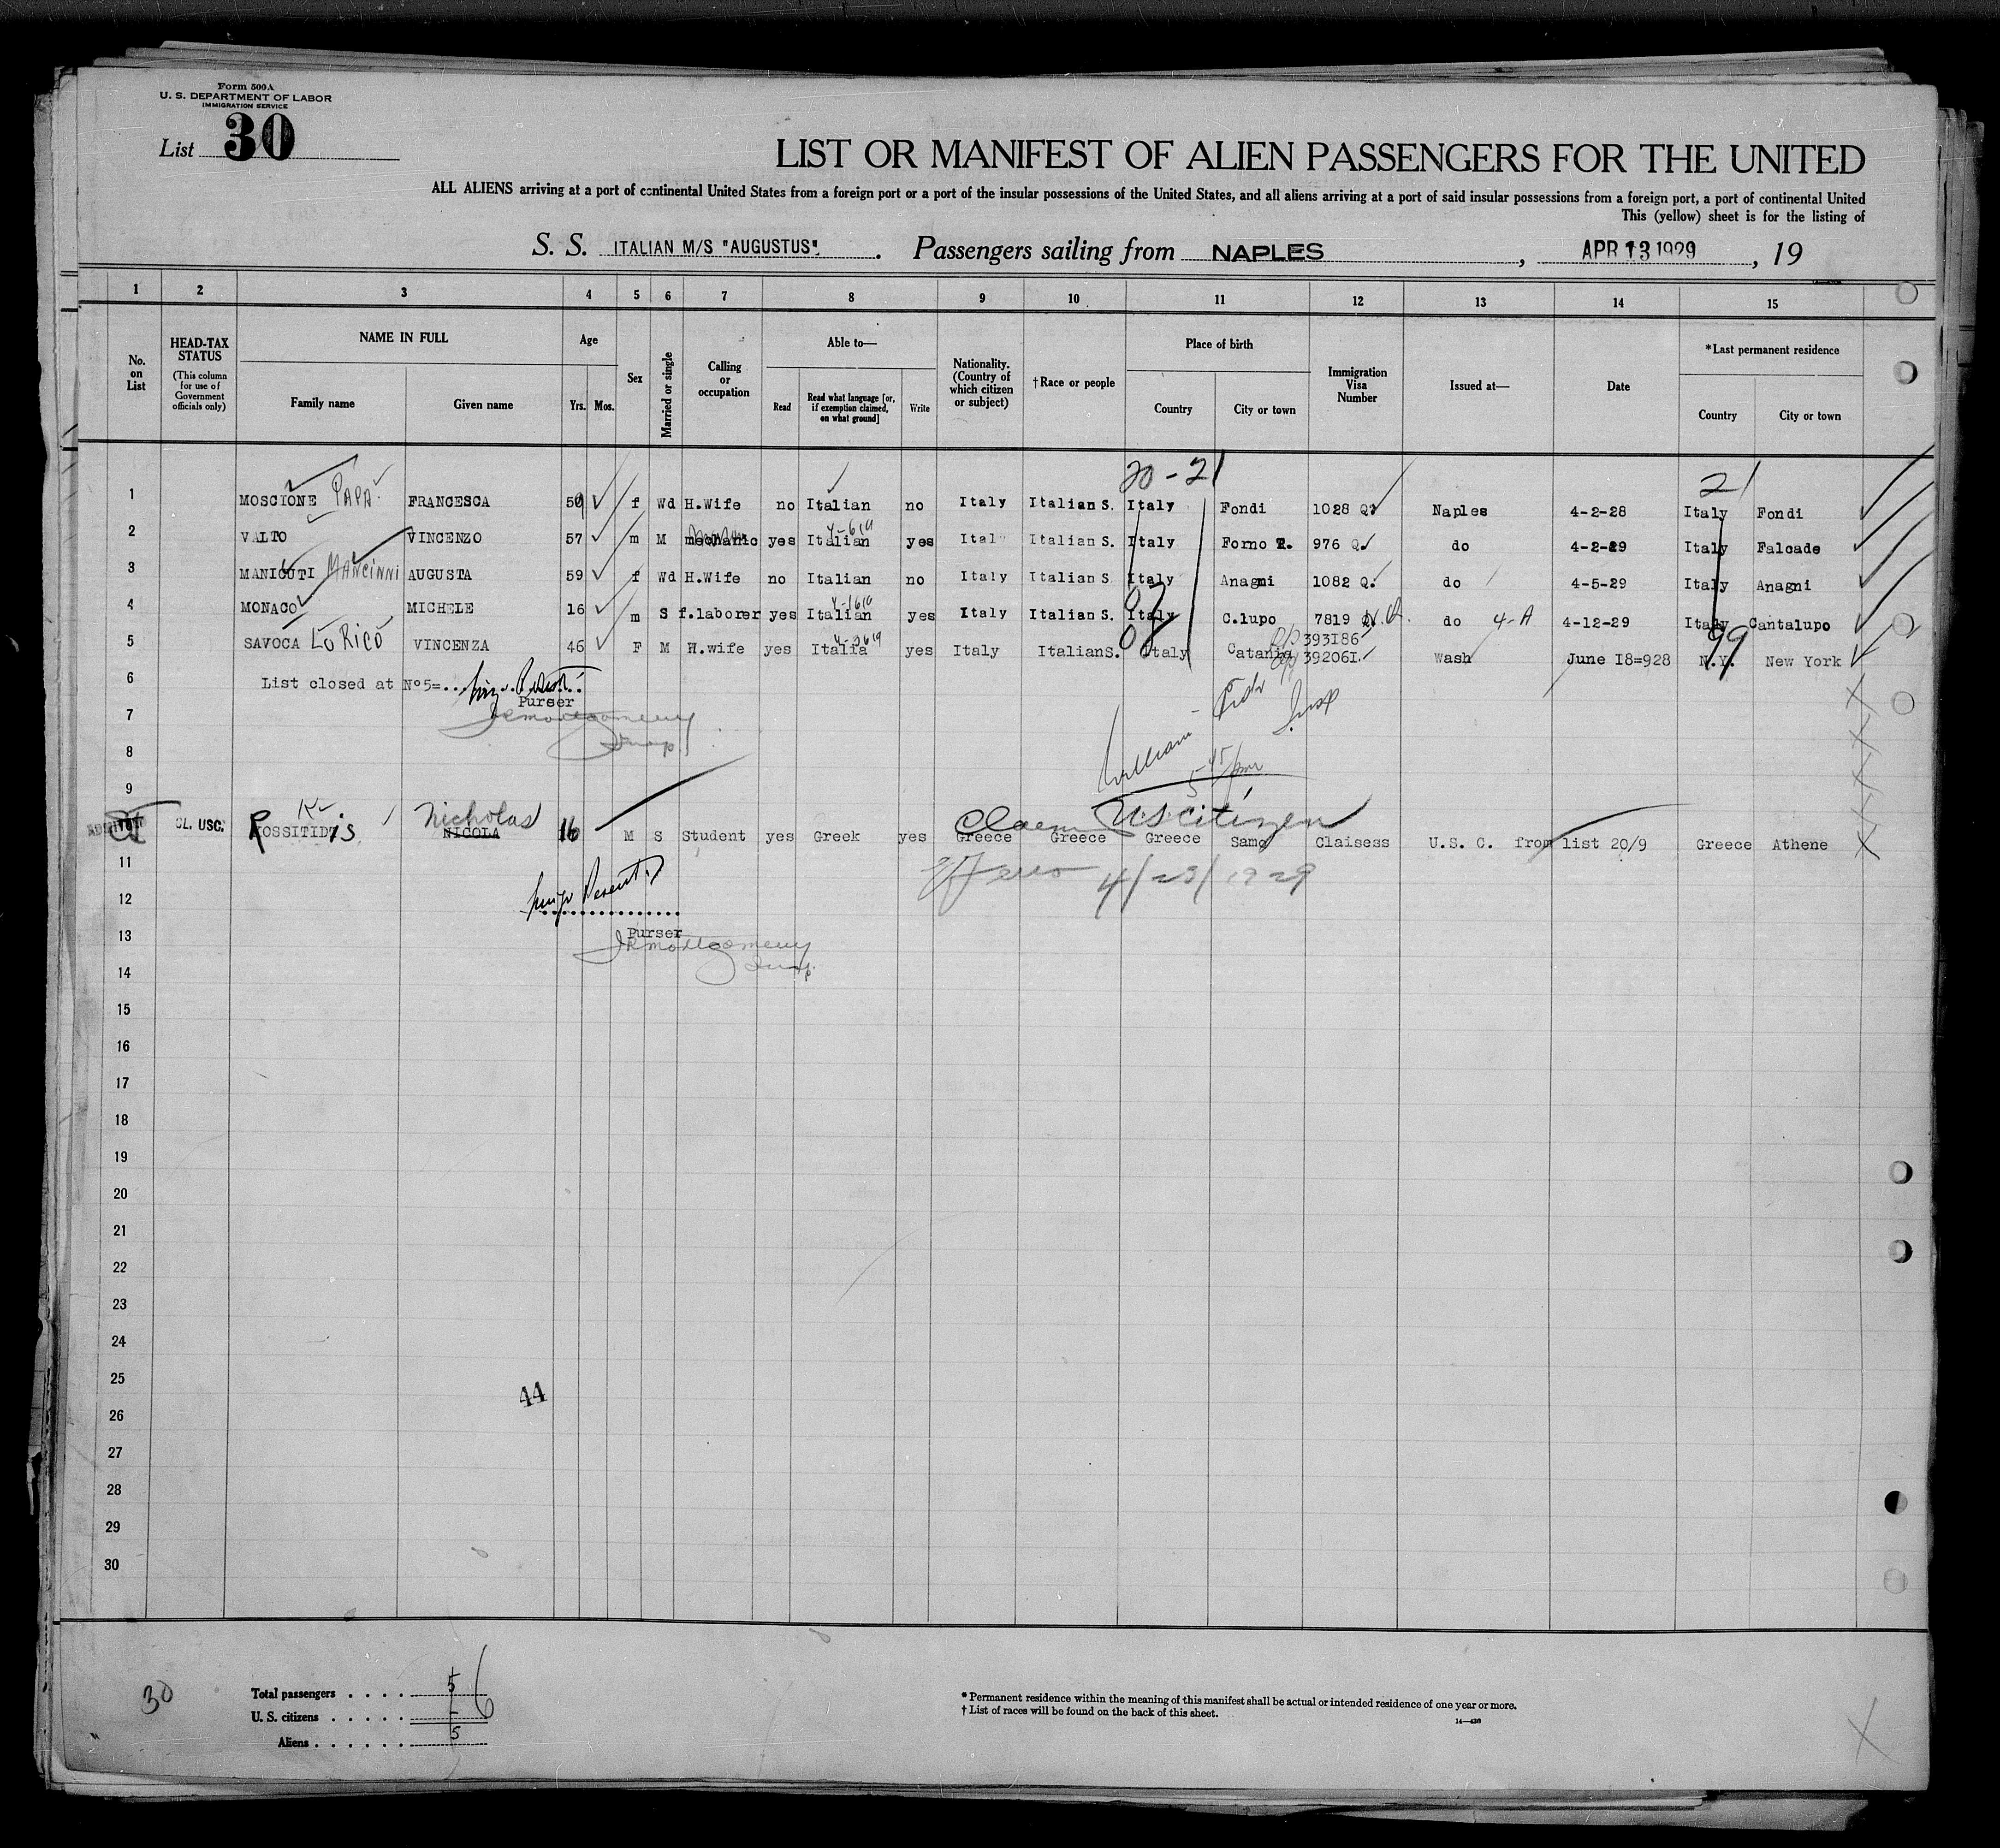 Form 500A
U. S. DEPARTMENT OF LABOR
IMMIGRATION SERVICE
List 30
LIST OR MANIFEST OF ALIEN PASSENGERS FOR THE UNITED
ALL ALIENS arriving at a port of continental United States from a foreign port or a port of the insular possessions of the United States, and all aliens arriving at a port of said insular possessions from a foreign port, a port of continental United
This (yellow) sheet is for the listing of
S. S. ITALIAN M/S "AUGUSTUS". Passengers sailing from NAPLES, APR 13 1929, 19
1 2 3 4 5 6 7 8 9 10 11 12 13 14 15
No. on List
HEAD-TAX STATUS (This column for use of Government officials only)
NAME IN FULL
Family name Given name
Age
Yrs. Mos.
Sex
Married or single
Calling or occupation
Able to—
Read Read what language [or, if exemption claimed, on what ground] Write
Nationality. (Country of which citizen or subject)
†Race or people
Place of birth
Country City or town
Immigration Visa Number
Issued at—
Date
*Last permanent residence
Country City or town
20-21 21
1 MOSCIONE PAPA FRANCESCA 59 f Wd H.Wife no Italian no Italy Italian S. Italy Fondi 1028 Q. Naples 4-2-28 Italy Fondi
2 VALTO VINCENZO 57 m M mechanic yes Italian yes Italy Italian S. Italy Forno 976 Q. do 4-2-29 Italy Falcade
3 MANICUTI MANCINNI AUGUSTA 59 f Wd H.Wife no Italian no Italy Italian S Italy Anagni 1082 Q. do 4-5-29 Italy Anagni
4 MONACO MICHELE 16 m S f.laborer yes Italian yes Italy Italian S. Italy C.lupo 7819 do 4-A 4-12-29 Italy Cantalupo
5 SAVOCA LO RICO VINCENZA 46 F M H.wife yes Italia yes Italy ItalianS. Italy Catania 393I86 39206I. Wash June I8=928 N.Y. New York
99
6 List closed at Nº5=
Purser
7 JR Montgomery
Insp.
8
William
5-45/pm
9
ADMITTED CL. USC. ROSSITIDIS Nicholas NICOLA 16 M S Student yes Greek yes Greece Greece Greece Samo Claisess U.S. C. from list 20/9 Greece Athene
Claims US Citizen
11
4/23/1929
12
Purser
13 JR Montgomery
Insp.
14
15
16
17
18
19
20
21
22
23
24
25
44
26
27
28
29
30
30
Total passengers 5 6
U. S. citizens -
Aliens 5
* Permanent residence within the meaning of this manifest shall be actual or intended residence of one year or more.
† List of races will be found on the back of this sheet.
14—430